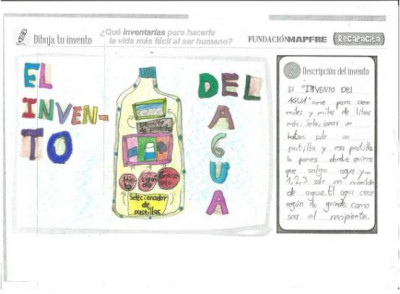 Dibuja tu invento
¿Qué inventarías para hacerle
la vida más fácil al ser humano?
FUNDACIÓNMAPFRE
RECAPACICLA
EL
INVEN-
TO
DEL
AGUA
Selecionador
de
pastillas
Descripción del invento
El "INVENTO DEL
AGUA" sirve para crear
miles y miles de litros
más. Selecionas un
boton sale un
pastilla y esa pastilla
la pones donde quieras
que salga agua y...
1, 2, 3 sale un montón
de agua. El agua crece
según lo grande como
sea el recipiente.